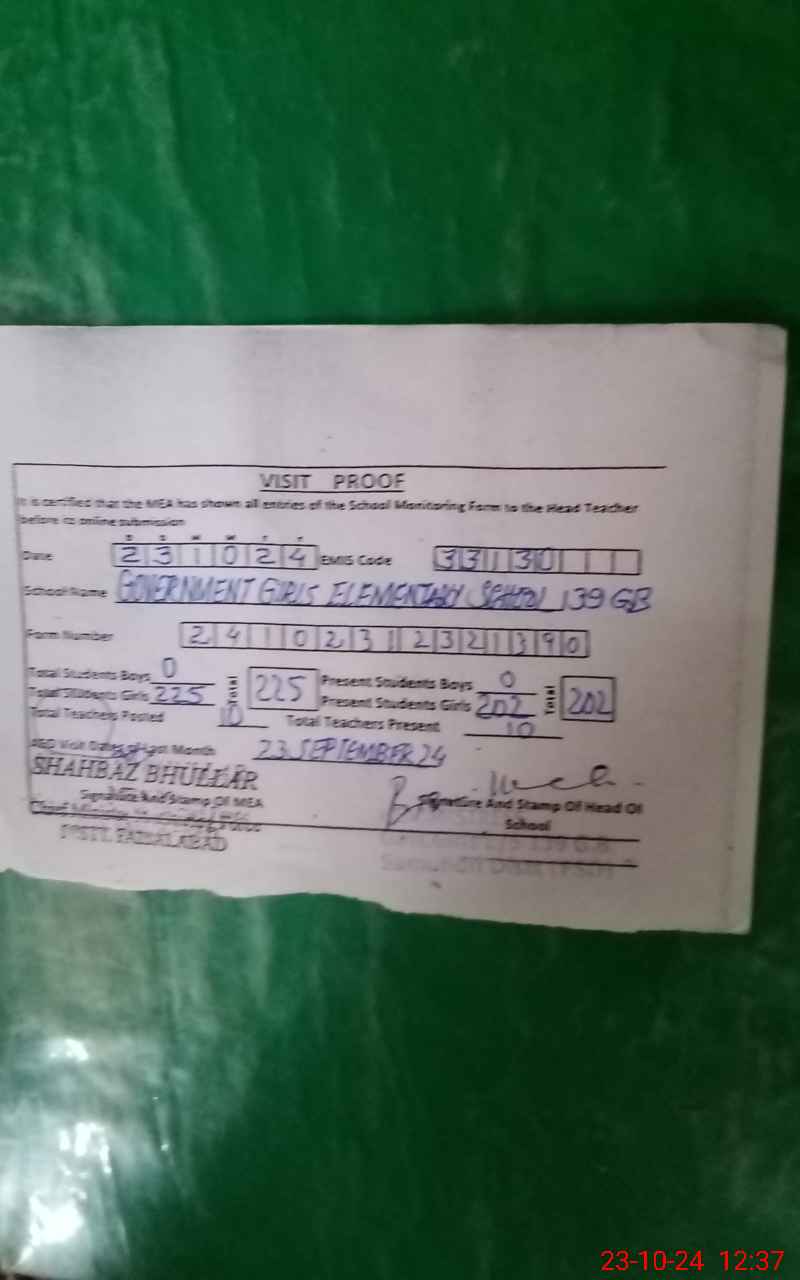 VISIT PROOF
It is certified that the MEA has shown all entries of the School Monitoring Form to the Head Teacher
before its online submission
D D M M Y Y
Date 2 3 1 0 2 4 EMIS Code 3 3 1 3 0
School Name GOVERNMENT GIRLS ELEMENTARY SCHOOL 139 GB
Form Number 2 4 1 0 2 3 1 2 3 2 1 3 9 0
Total Students Boys 0 Total 225 Present Students Boys 0 Total 202
Total Students Girls 225 Present Students Girls 202
Total Teachers Posted 10 Total Teachers Present 10
Visit Date of Last Month 23 SEPTEMBER 24
SHAHBAZ BHULLAR
Signature And Stamp Of MEA Signature And Stamp Of Head Of
School
Chief Minister's Force
DISTT. FAISALABAD
139 G.B.
23-10-24 12:37